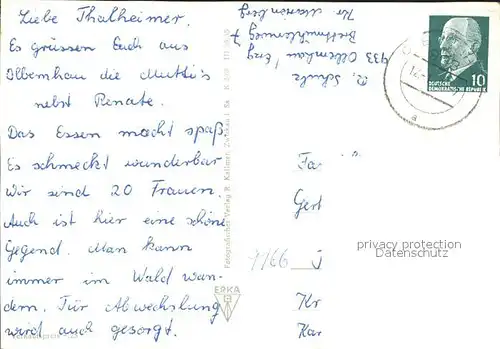 Liebe Thalheimer.
Es grüssen Euch aus
Olbernhau die Mutti's
nebst Renate.
Das Essen macht spaß.
Es schmeckt wunderbar
Wir sind 20 Frauen.
Auch ist hier eine schöne
Gegend. Man kann
immer im Wald wan-
dern. Für Abwechslung
wird auch gesorgt.
Schulz
933 Olbernhau Erzg
Brettmühlenweg 7
Kr. Marienberg
Fotografischer Verlag R. Kallmer, Zwickau
ERKA
10
DEUTSCHE
DEMOKRATISCHE REPUBLIK
Fa
Gert
privacy protection
Datenschutz
Kr
Kar